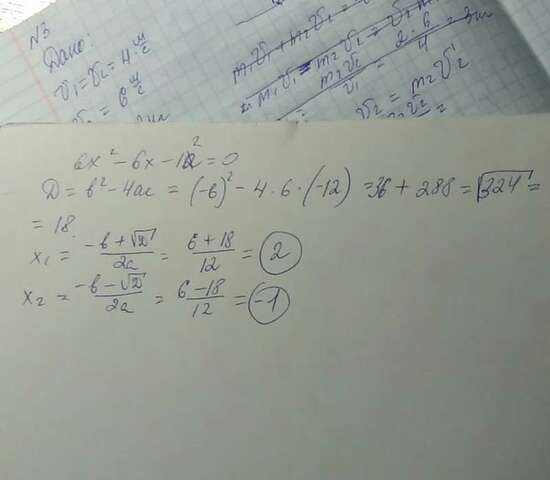 N3
Дано:
v₁=v₂=4 м/с
6 м/с
m₁v₁ + m₂v₂ =
m₁v₁ = m₂v₂ =
m₂v₂ / v₁ = 2·6 / 4 = 3
v₂ = m₂v₂'
6x² - 6x - 12 = 0
D = b² - 4ac = (-6)² - 4·6·(-12) = 36 + 288 = √324 =
= 18
x₁ = (-b + √D) / 2a = (6 + 18) / 12 = 2
x₂ = (-b - √D) / 2a = (6 - 18) / 12 = -1